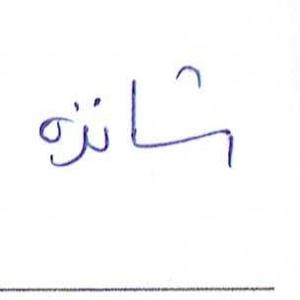 شانزه